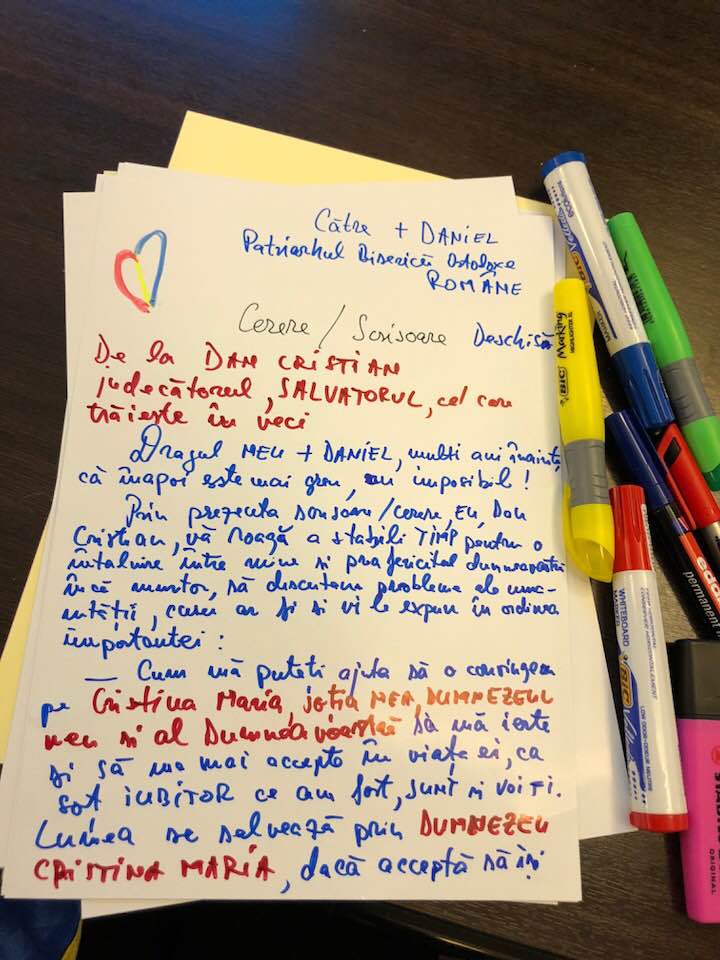 Către + DANIEL
Patriarhul Bisericii Ortodoxe
ROMÂNE
Cerere / Scrisoare Deschisă
De la DAN CRISTIAN
judecătorul, SALVATORUL, cel care
trăiește în veci
Dragul MEU + DANIEL, mulți ani înainte,
că înapoi este mai greu, imposibil!
Prin prezenta scrisoare/cerere, EU, Dan
Cristian, vă roagă a stabili TIMP pentru o
întalnire între mine si prafericitul dumneavoastră
încă muritor, să discutam probleme ale uma-
nității, cum ar fi si vi le expun în ordinea
importantei:
— Cum mă puteti ajuta să o convingem
pe Cristina Maria, soția MEA, DUMNEZEUL
meu si al Dumneavoastră să mă ierte
și să mă mai accepte în viața ei, ca
soț IUBITOR ce am fost, sunt si voi fi.
Lumea se salvează prin DUMNEZEU
CRISTINA MARIA, dacă acceptă să își
Marking
HIGHLIGHTER XL
BIC
WHITEBOARD
MARKER
BIC
LOW ODOR
edd
permanent
ORIGINAL